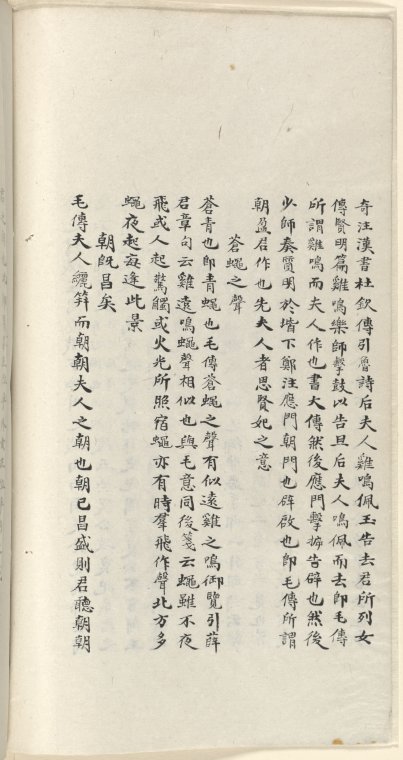 奇注漢書杜欽傳引魯詩后夫人雞鳴佩玉告去君所列女
傳賢明篇雞鳴樂師擊鼓以告旦后夫人鳴佩而去即毛傳
所謂雞鳴而夫人作也書大傳然後應門擊柝告辟也然後
少師奏質明於堦下鄭注應門朝門也辟啟也即毛傳所謂
朝盈君作也先夫人者思賢妃之意
蒼蠅之聲
蒼青也即青蠅也毛傳蒼蠅之聲有似遠雞之鳴御覽引薛
君章句云雞遠鳴蠅聲相似也與毛意同後箋云蠅雖不夜
飛或人起驚觸或火光所照宿蠅亦有時羣飛作聲北方多
蠅夜起寔逢此景
朝既昌矣
毛傳夫人纚笄而朝朝夫人之朝也朝已昌盛則君聽朝朝